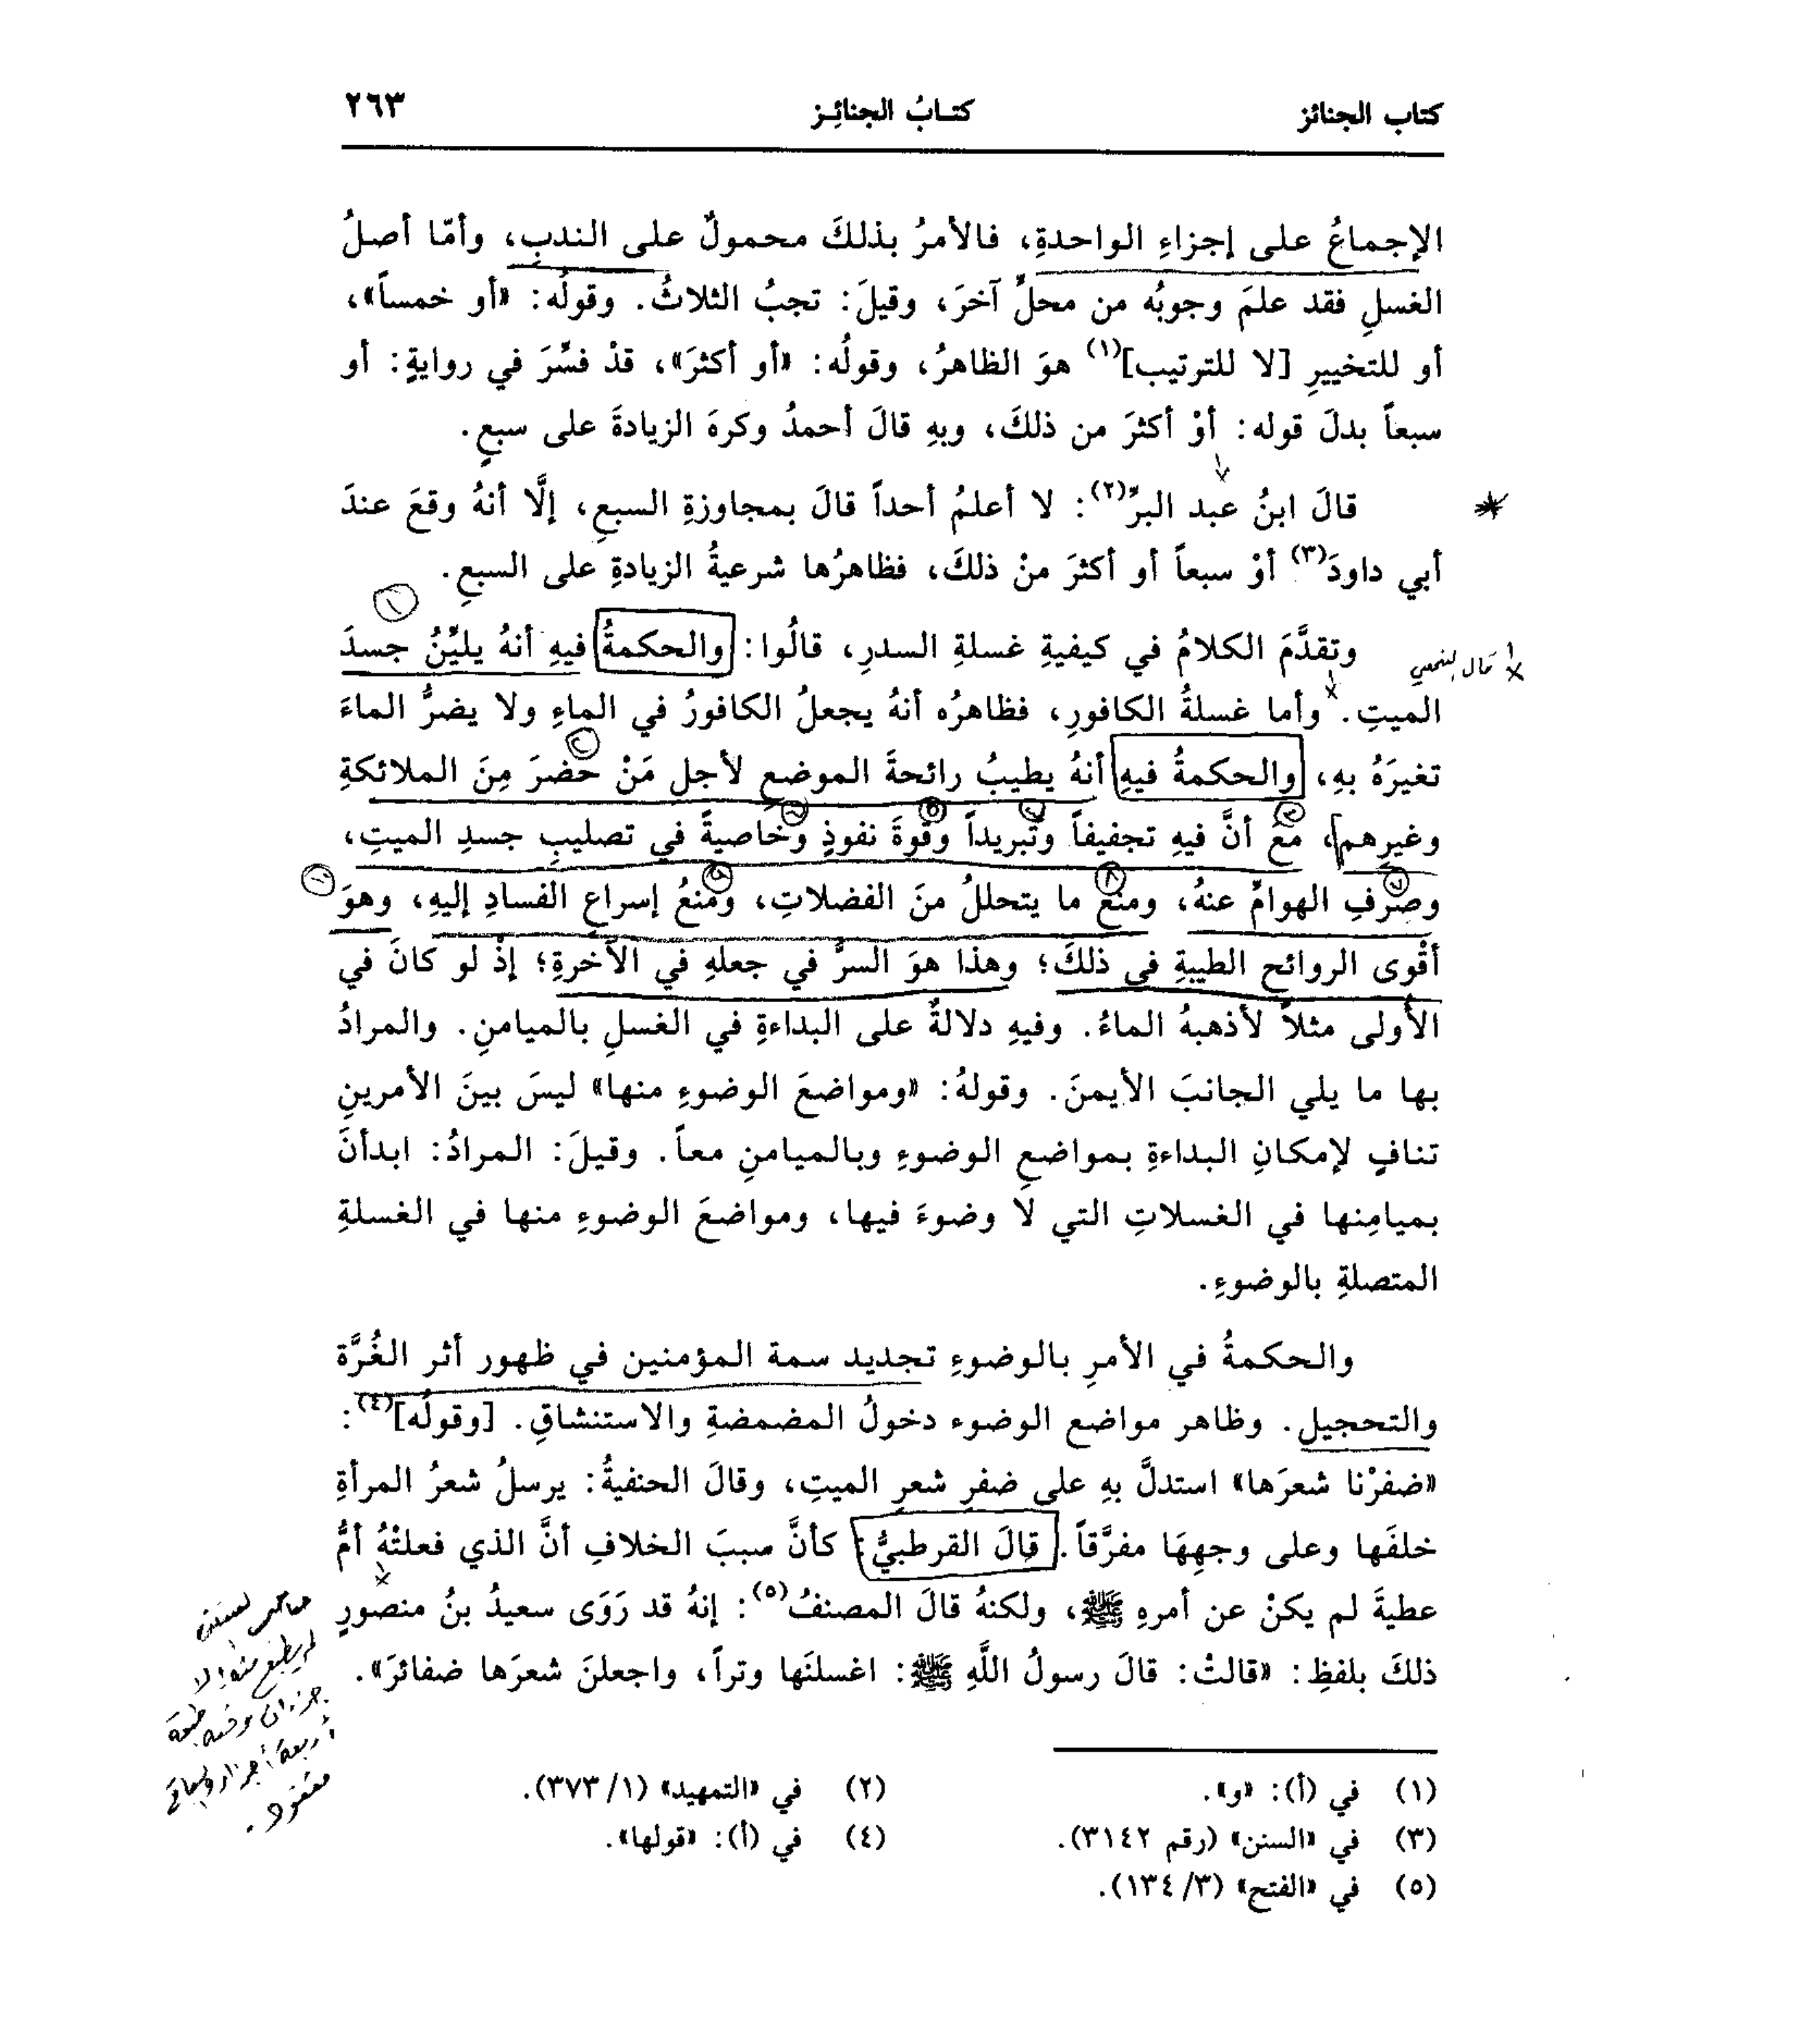 كتاب الجنائز كتـابُ الجنائِـز ٢٦٣
الإجماعُ على إجزاءِ الواحدةِ، فالأمرُ بذلكَ محمولٌ على الندبِ، وأمّا أصلُ
الغسلِ فقد علمَ وجوبُه من محلٍّ آخرَ، وقيلَ: تجبُ الثلاثُ. وقولُه: «أو خمساً»،
أو للتخييرِ [لا للترتيب](١) هوَ الظاهرُ، وقولُه: «أو أكثرَ»، قدْ فسِّرَ في روايةٍ: أو
سبعاً بدلَ قوله: أوْ أكثرَ من ذلكَ، وبهِ قالَ أحمدُ وكرهَ الزيادةَ على سبعٍ.
قالَ ابنُ عبد البرِّ(٢): لا أعلمُ أحداً قالَ بمجاوزةِ السبعِ، إلَّا أنهُ وقعَ عندَ
أبي داودَ(٣) أوْ سبعاً أو أكثرَ منْ ذلكَ، فظاهرُها شرعيةُ الزيادةِ على السبعِ.
وتقدَّمَ الكلامُ في كيفيةِ غسلةِ السدرِ، قالُوا: والحكمةُ فيهِ أنهُ يليِّنُ جسدَ
الميتِ. وأما غسلةُ الكافورِ، فظاهرُه أنهُ يجعلُ الكافورُ في الماءِ ولا يضرُّ الماءَ
تغيرَهُ بهِ، والحكمةُ فيهِ أنهُ يطيبُ رائحةَ الموضعِ لأجلِ مَنْ حضرَ مِنَ الملائكةِ
وغيرِهم، معَ أنَّ فيهِ تجفيفاً وتبريداً وقوةَ نفوذٍ وخاصيةً في تصليبِ جسدِ الميتِ،
وصرفِ الهوامِّ عنهُ، ومنعُ ما يتحللُ منَ الفضلاتِ، ومنعُ إسراعِ الفسادِ إليهِ، وهوَ
أقْوى الروائحِ الطيبةِ في ذلكَ؛ وهذا هوَ السرُّ في جعلهِ في الآخرةِ؛ إذْ لو كانَ في
الأولى مثلاً لأذهبهُ الماءُ. وفيهِ دلالةٌ على البداءةِ في الغسلِ بالميامنِ. والمرادُ
بها ما يلي الجانبَ الأيمنَ. وقولهُ: «ومواضعَ الوضوءِ منها» ليسَ بينَ الأمرينِ
تنافٍ لإمكانِ البداءةِ بمواضعِ الوضوءِ وبالميامنِ معاً. وقيلَ: المرادُ: ابدأنَ
بميامِنها في الغسلاتِ التي لا وضوءَ فيها، ومواضعَ الوضوءِ منها في الغسلةِ
المتصلةِ بالوضوءِ.
والحكمةُ في الأمرِ بالوضوءِ تجديد سمة المؤمنين في ظهور أثر الغُرَّة
والتحجيل. وظاهر مواضع الوضوء دخولُ المضمضةِ والاستنشاقِ. [وقولُه](٤):
«ضفرْنا شعرَها» استدلَّ بهِ على ضفرِ شعرِ الميتِ، وقالَ الحنفيةُ: يرسلُ شعرُ المرأةِ
خلفَها وعلى وجهِهَا مفرَّقاً. قالَ القرطبيُّ: كأنَّ سببَ الخلافِ أنَّ الذي فعلتْهُ أمُّ
عطيةَ لم يكنْ عن أمرهِ ﷺ، ولكنهُ قالَ المصنفُ(٥): إنهُ قد رَوَى سعيدُ بنُ منصورٍ
ذلكَ بلفظِ: «قالتْ: قالَ رسولُ اللَّهِ ﷺ: اغسلنَها وتراً، واجعلنَ شعرَها ضفائرَ».
لم يطبع منه إلا
مفقود.
(١) في (أ): «و». (٢) في «التمهيد» (١/ ٣٧٣).
(٣) في «السنن» (رقم ٣١٤٢). (٤) في (أ): «قولها».
(٥) في «الفتح» (٣/ ١٣٤).